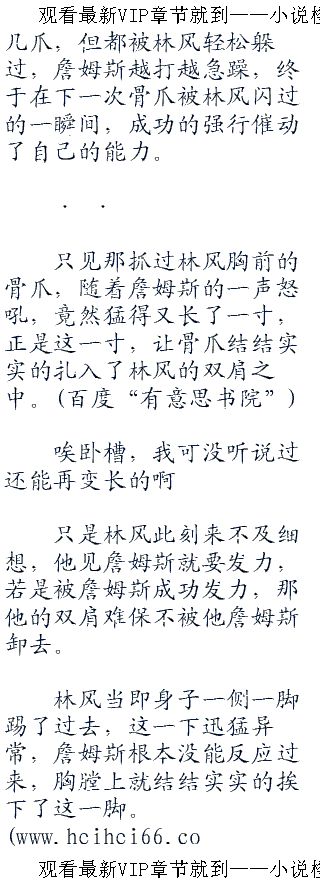 观看最新VIP章节就到——小说
几爪，但都被林风轻松躲
过，詹姆斯越打越急躁，终
于在下一次骨爪被林风闪过
的一瞬间，成功的强行催动
了自己的能力。
. .
只见那抓过林风胸前的
骨爪，随着詹姆斯的一声怒
吼，竟然猛得又长了一寸，
正是这一寸，让骨爪结结实
实的扎入了林风的双肩之
中。(百度“有意思书院”)
唉卧槽，我可没听说过
还能再变长的啊
只是林风此刻来不及细
想，他见詹姆斯就要发力，
若是被詹姆斯成功发力，那
他的双肩难保不被他詹姆斯
卸去。
林风当即身子一侧一脚
踢了过去，这一下迅猛异
常，詹姆斯根本没能反应过
来，胸膛上就结结实实的挨
下了这一脚。
(www.hcihci66.co
观看最新VIP章节就到——小说